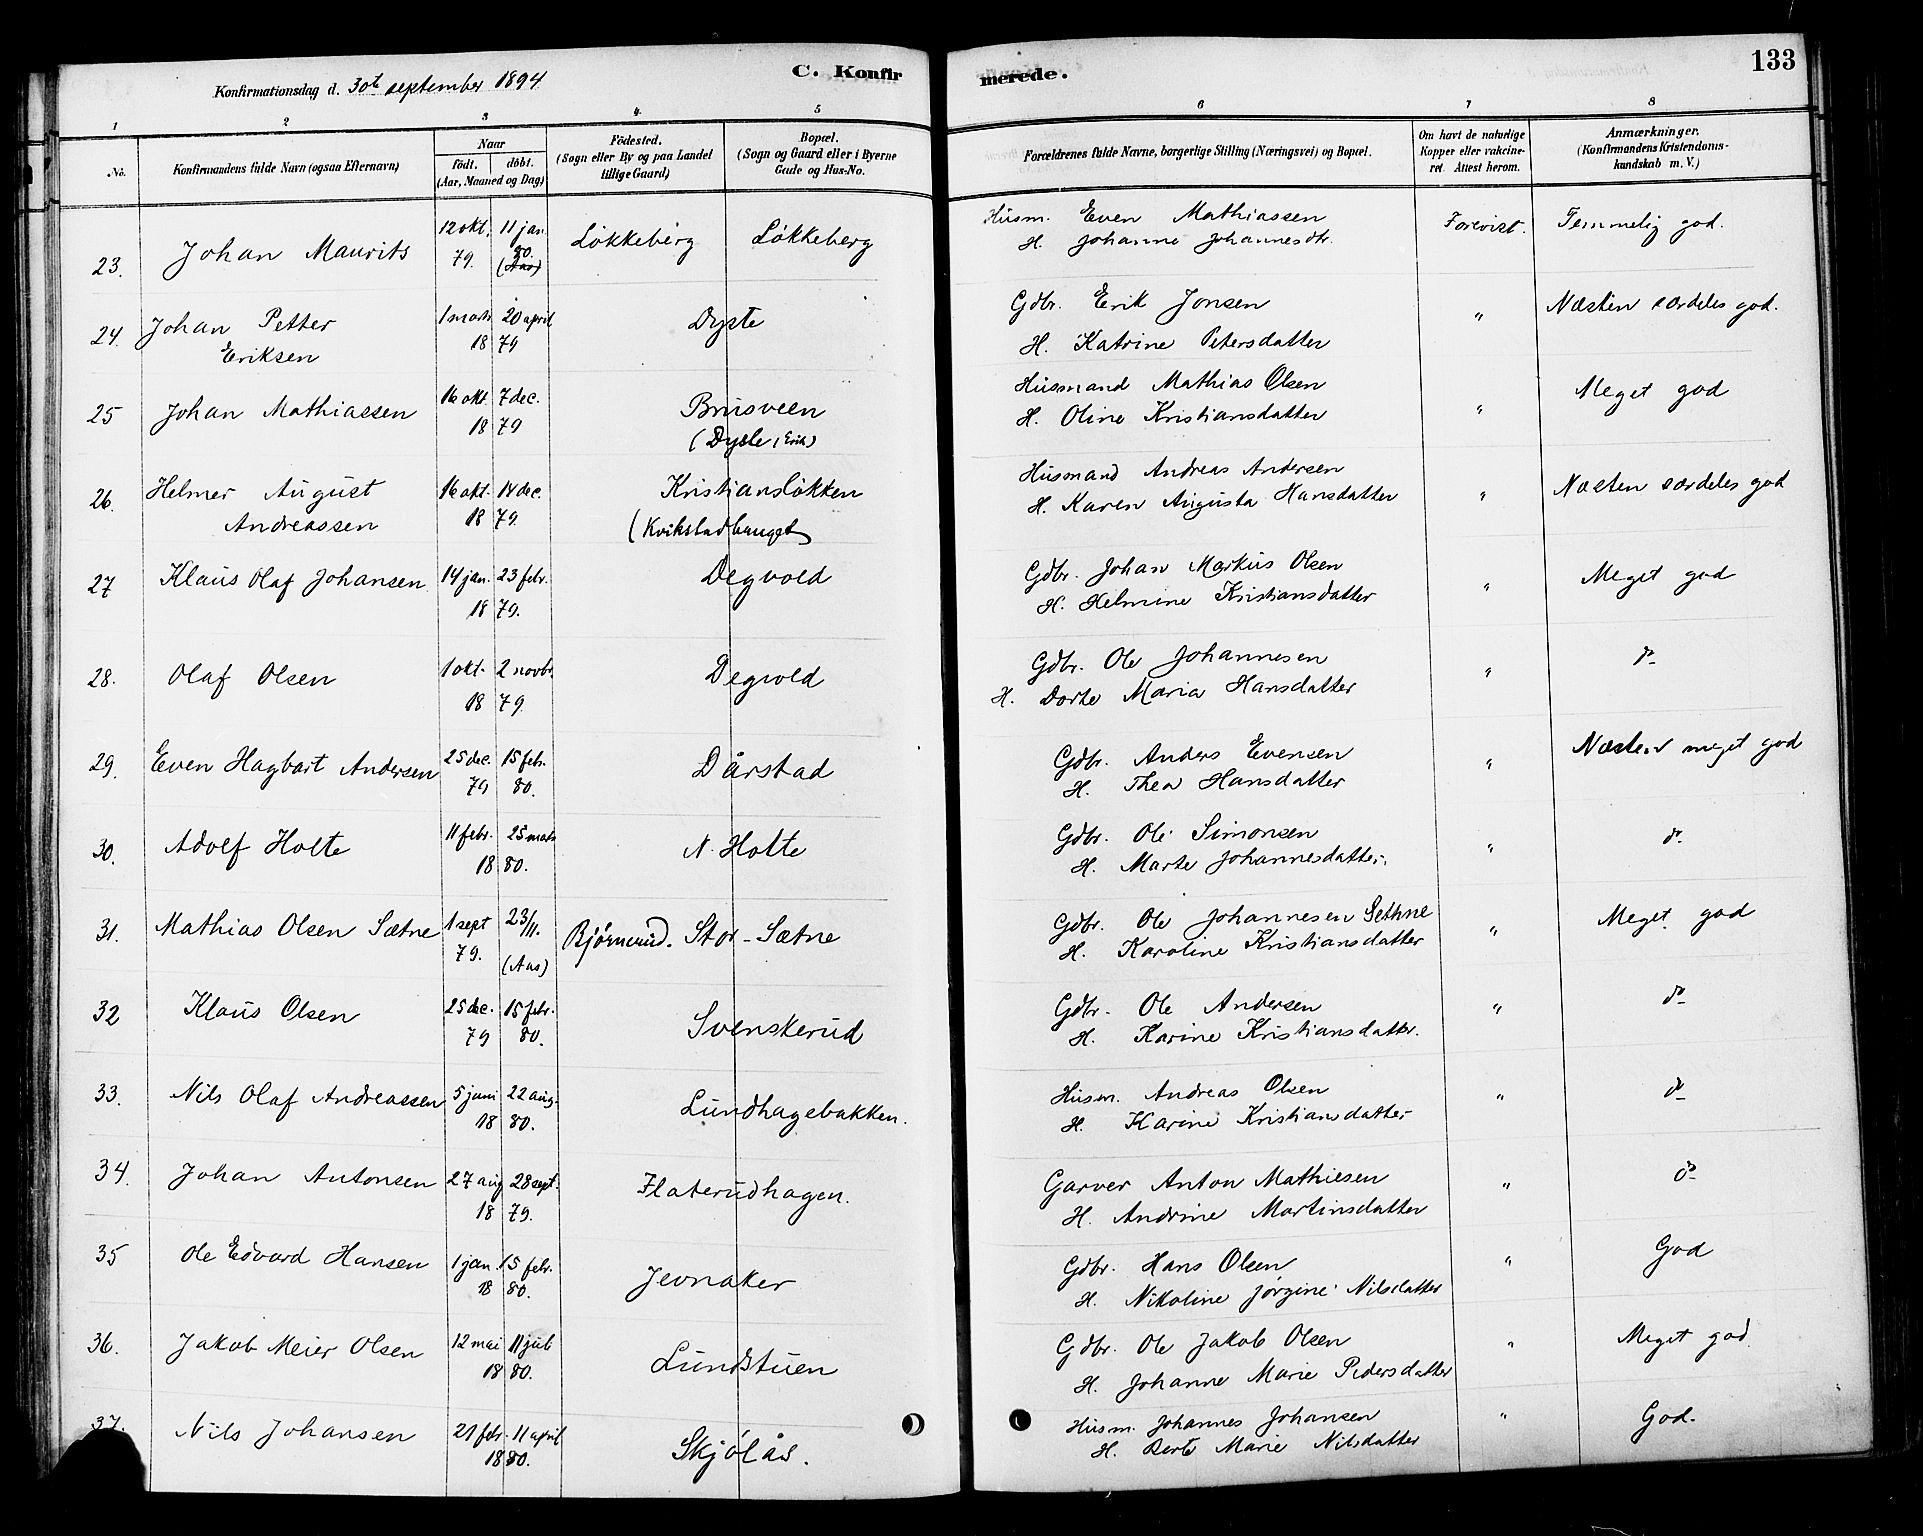 Konfirmationsdag d. 30te september 1894
C. Konfir
merede.
133
1 2 3 4 5 6 7 8
No.
Konfirmandens fulde Navn (ogsaa Efternavn)
Naar
födt. döbt.
(Aar, Maaned og Dag)
Födested.
(Sogn eller By og paa Landet
tillige Gaard)
Bopæl.
(Sogn og Gaard eller i Byerne
Gade og Hus-No.
Forældrenes fulde Navne, borgerlige Stilling (Næringsvei) og Bopæl.
Om havt de naturlige
Kopper eller vakcine-
ret. Attest herom.
Anmærkninger.
(Konfirmandens Kristendoms-
kundskab m. V.)
23. Johan Maurits 12 okt. 79. 11 jan. 80. (Aas) Løkkeberg Løkkeberg Husm. Even Mathiassen Forevist. Temmelig god.
H. Johanne Johannesdtr.
24. Johan Petter 1 marts 20 april Dyste Gdbr. Erik Jonsen " Næsten særdeles god.
Eriksen 18 79 H. Katrine Petersdatter
25 Johan Mathiassen 16 okt. 7 dec. Brusveen Husmand Mathias Olsen " Meget god
18 79 (Dyste, Erik) H. Oline Kristiansdatter
26. Helmer August 16 okt. 14 dec. Kristiansløkken Husmand Andreas Andersen " Næsten særdeles god
Andreassen 18 79. (Kvikstadhauget) H. Karen Augusta Hansdatter
27 Klaus Olaf Johansen 14 jan. 23 febr. Degvold Gdbr. Johan Markus Olsen " Meget god
18 79. H. Helmine Kristiansdatter
28. Olaf Olsen 1 okt. 2 novbr. Degvold Gdbr. Ole Johannesen " do
18 79. H. Dorte Maria Hansdatter
29. Even Hagbart Andersen 25 dec. 15 febr. Dårstad Gdbr. Anders Evensen " Næsten meget god
79 80. H. Thea Hansdatter
30. Adolf Holte 11 febr. 25 mars N. Holte Gdbr. Ole Simonsen " do
18 80. H. Marte Johannesdatter.
31. Mathias Olsen Sætne 1 sept 23/11. Bjørnerud. Stor-Sætne Gdbr. Ole Johannesen Sethne " Meget god
79. (Aas) H. Karoline Kristiansdatter
32 Klaus Olsen 25 dec. 15 febr. Svenskerud Gdbr. Ole Andersen " do
79 80. H. Karine Kristiansdattr.
33. Nils Olaf Andreassen 5 juni 22 aug. Lundhagebakken. Husm. Andreas Olsen " do
18 80. H. Karine Kristiansdatter
34. Johan Antonsen 27 aug 28 sept. Flaterudhagen. Garver Anton Mathiesen " do
18 79. H. Andrine Martinsdatter
35 Ole Edvard Hansen 1 jan. 15 febr. Jevnaker Gdbr. Hans Olsen " God
18 80. H. Nikoline Jørgine Nilsdatter
36. Jakob Meier Olsen 12 mai 11 juli Lundstuen Gdbr. Ole Jakob Olsen " Meget god
18 80. H. Johanne Marie Pedersdatter
37. Nils Johansen 21 febr. 11 april Skjølås. Husm. Johannes Johansen " God.
18 80. H. Berte Marie Nilsdatter